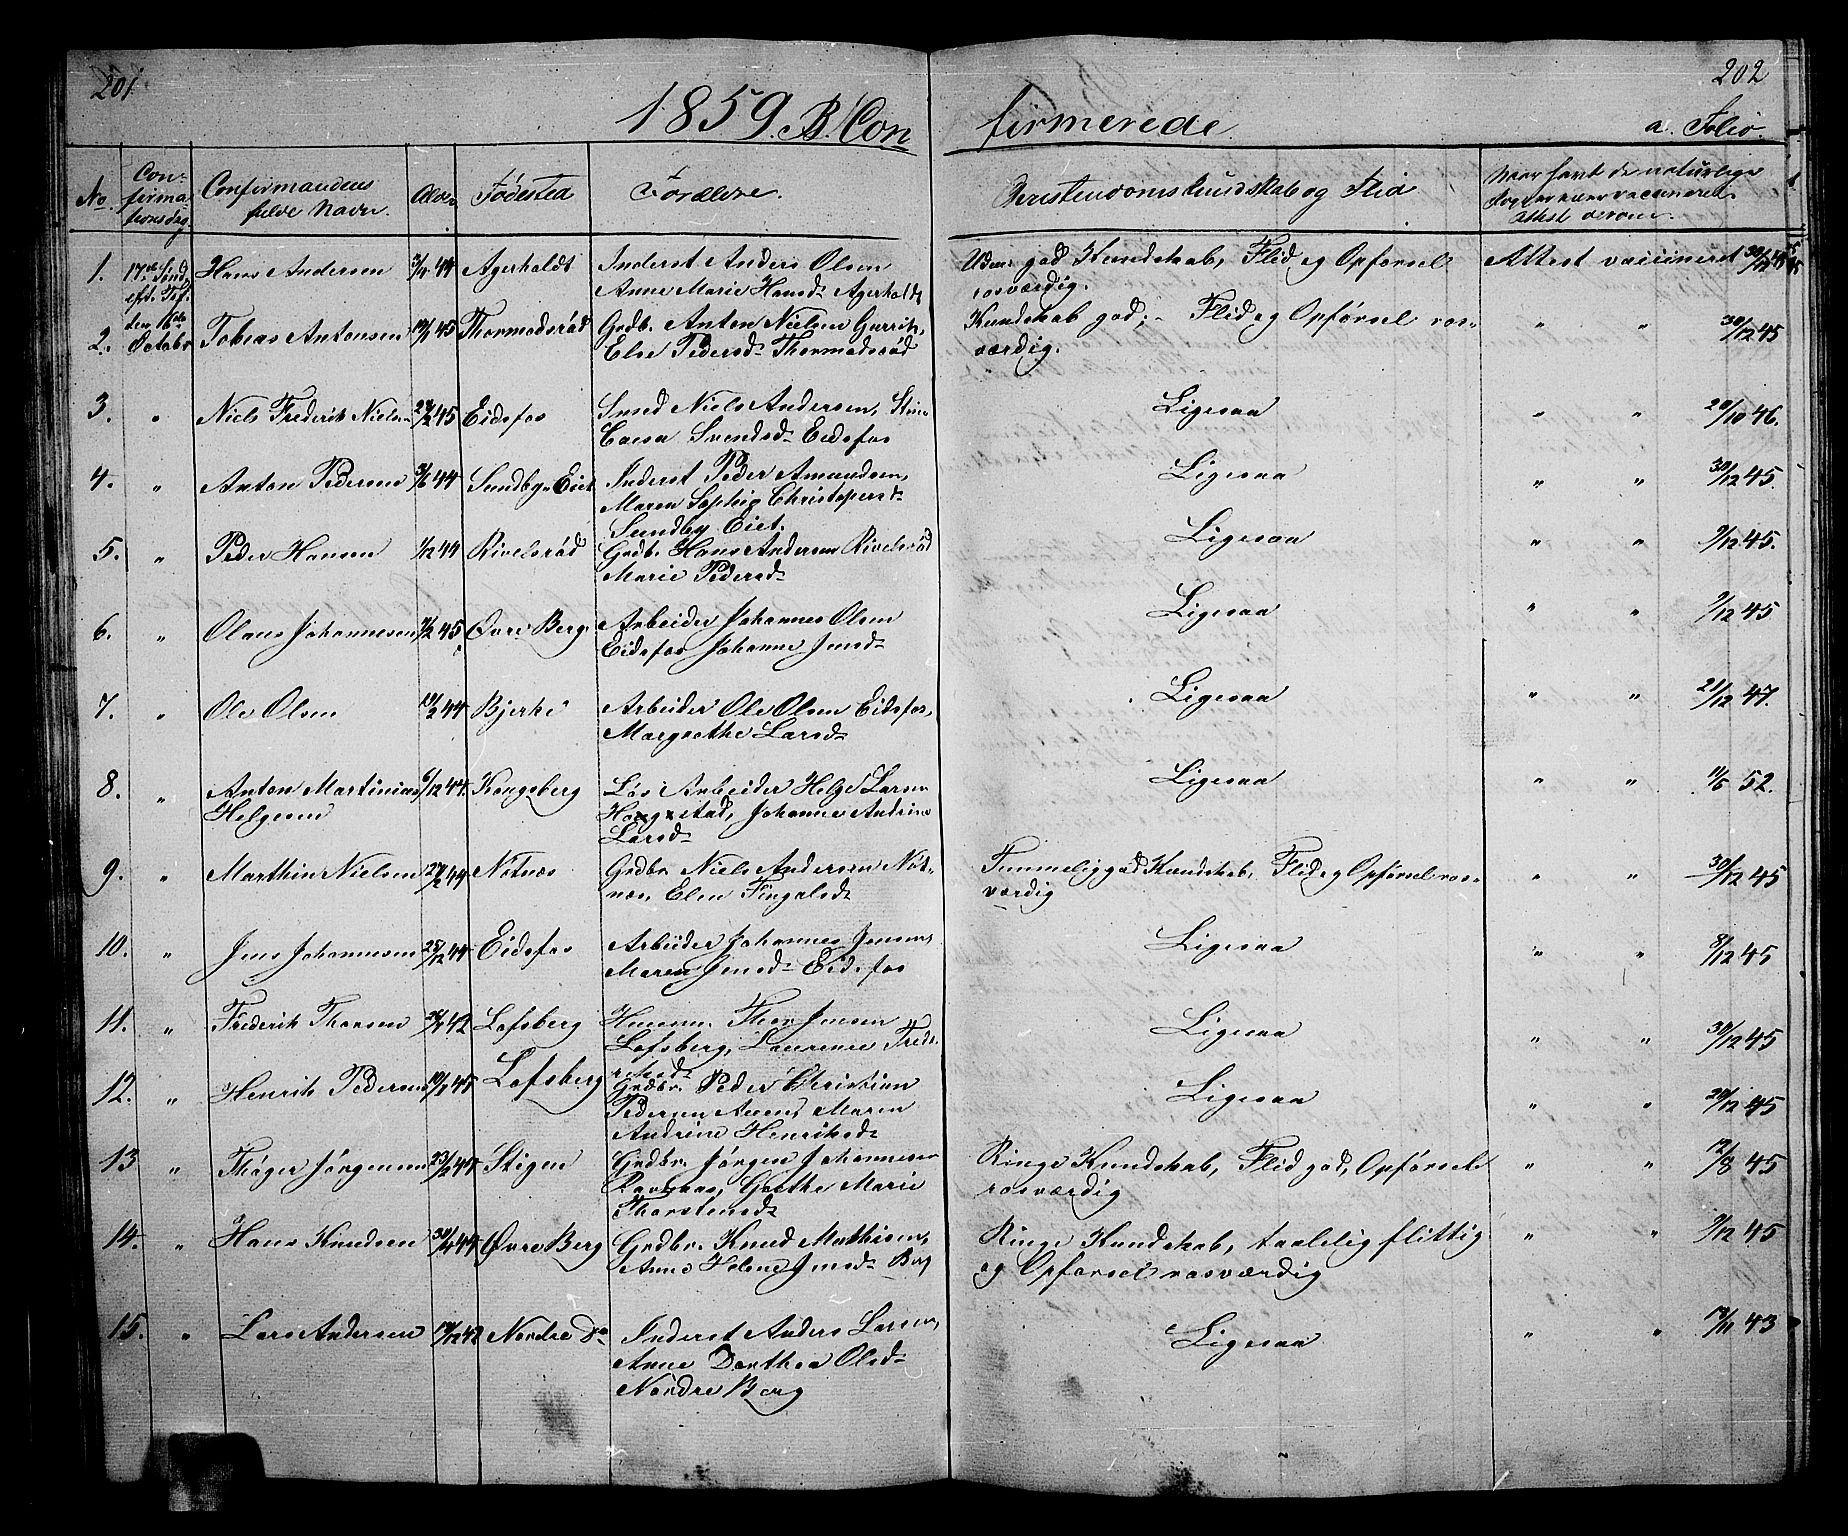 201
202
1859. B. Confirmerede
a. Folio.
No. Confirmationsdag. Confirmandens fulde Navn. Alder Fødested Forældre. Christendomskundskab og Flid Naar havt de naturlige Kopper eller vaccineret. Attest derom.
1. 17de Sønd. eft. Tref. den 16de Octobr Hans Andersen 44 Agerholdt Inderst Anders Olsen
Anne Marie Hansd. Agerholdt Udm. god Kundskab, Flid og Opførsel
rosværdig. Attest vaccineret 30/12 45
2. Tobias Antonsen 45 Thormodsrød Grdbr. Anton Nielsen
Else Pedersd. Thormodsrød Kundskab god, Flid og Opførsel ros-
værdig. " " 30/12 45
3. " Niels Frederik Nielsen 27/2 45 Eidsfos Smed Niels Andersen,
Caisa Svendsd. Eidsfos Ligesaa " " 20/10 46.
4. " Anton Pedersen 3/6 44 Sundby Eiet Inderst Peder Amundsen,
Maren Sophie Christophersd.
Sundby Eiet. Ligesaa " " 30/12 45.
5. " Peder Hansen 1/12 44 Rivelsrød Grdbr. Hans Andersen Rivelsrød
Marie Pedersd. Ligesaa " " 9/12 45.
6. " Olaus Johannesen 45 Øvre Berg Arbeider Johannes Olsen
Eidsfos Johanne Jensd. Ligesaa " " 9/12 45
7. " Ole Olsen 44 Bjerke Arbeider Ole Olsen Eidsfos,
Margrethe Larsd. Ligesaa " " 21/12 47.
8. " Anton Martinius
Helgesen 6/12 44. Kongsberg Løs Arbeider Helge Larsen
Johanne Andrine
Larsd. Ligesaa " " 11/6 52.
9. " Marthin Nielsen 27/2 44 Nøtnæs Grdbr. Niels Andersen Nøt-
næs, Elen Fingalsd. Temmelig god Kundskab, Flid og Opførsel ros-
værdig " " 30/12 45
10. " Jens Johannesen 25/12 44 Eidsfos Arbeider Johannes Jensen,
Maren Jensd. Eidsfos Ligesaa " " 8/12 45
11. " Frederik Thorsen 42 Lofsberg Huusm. Thor Jensen
Lofsberg, Laurence Fred-
riksd. Ligesaa " " 30/12 45
12. " Henrik Pedersen 45 Lofsberg Grdbr. Peder Christian
Pedersen Maren
Andrine Henriksd. Ligesaa " " 20/12 45
13 " Thøger Jørgensen 44 Stigen Grdbr. Jørgen Johannesen
Grethe Marie
Thorstensd. Ringe Kundskab, Flid god, Opførsel
rosværdig " " 12/8 45
14. " Hans Knudsen 44 Øvre Berg Grdbr. Knud Mathisen,
Anne Helene Jensd. Berg Ringe Kundskab, taalelig flittig
og Opførsel rosværdig " " 9/12 45
15. " Lars Andersen 42 Nordre Do Inderst Anders Larsen,
Anne Dorthea Olsd.
Nordre Berg Ligesaa " " 43